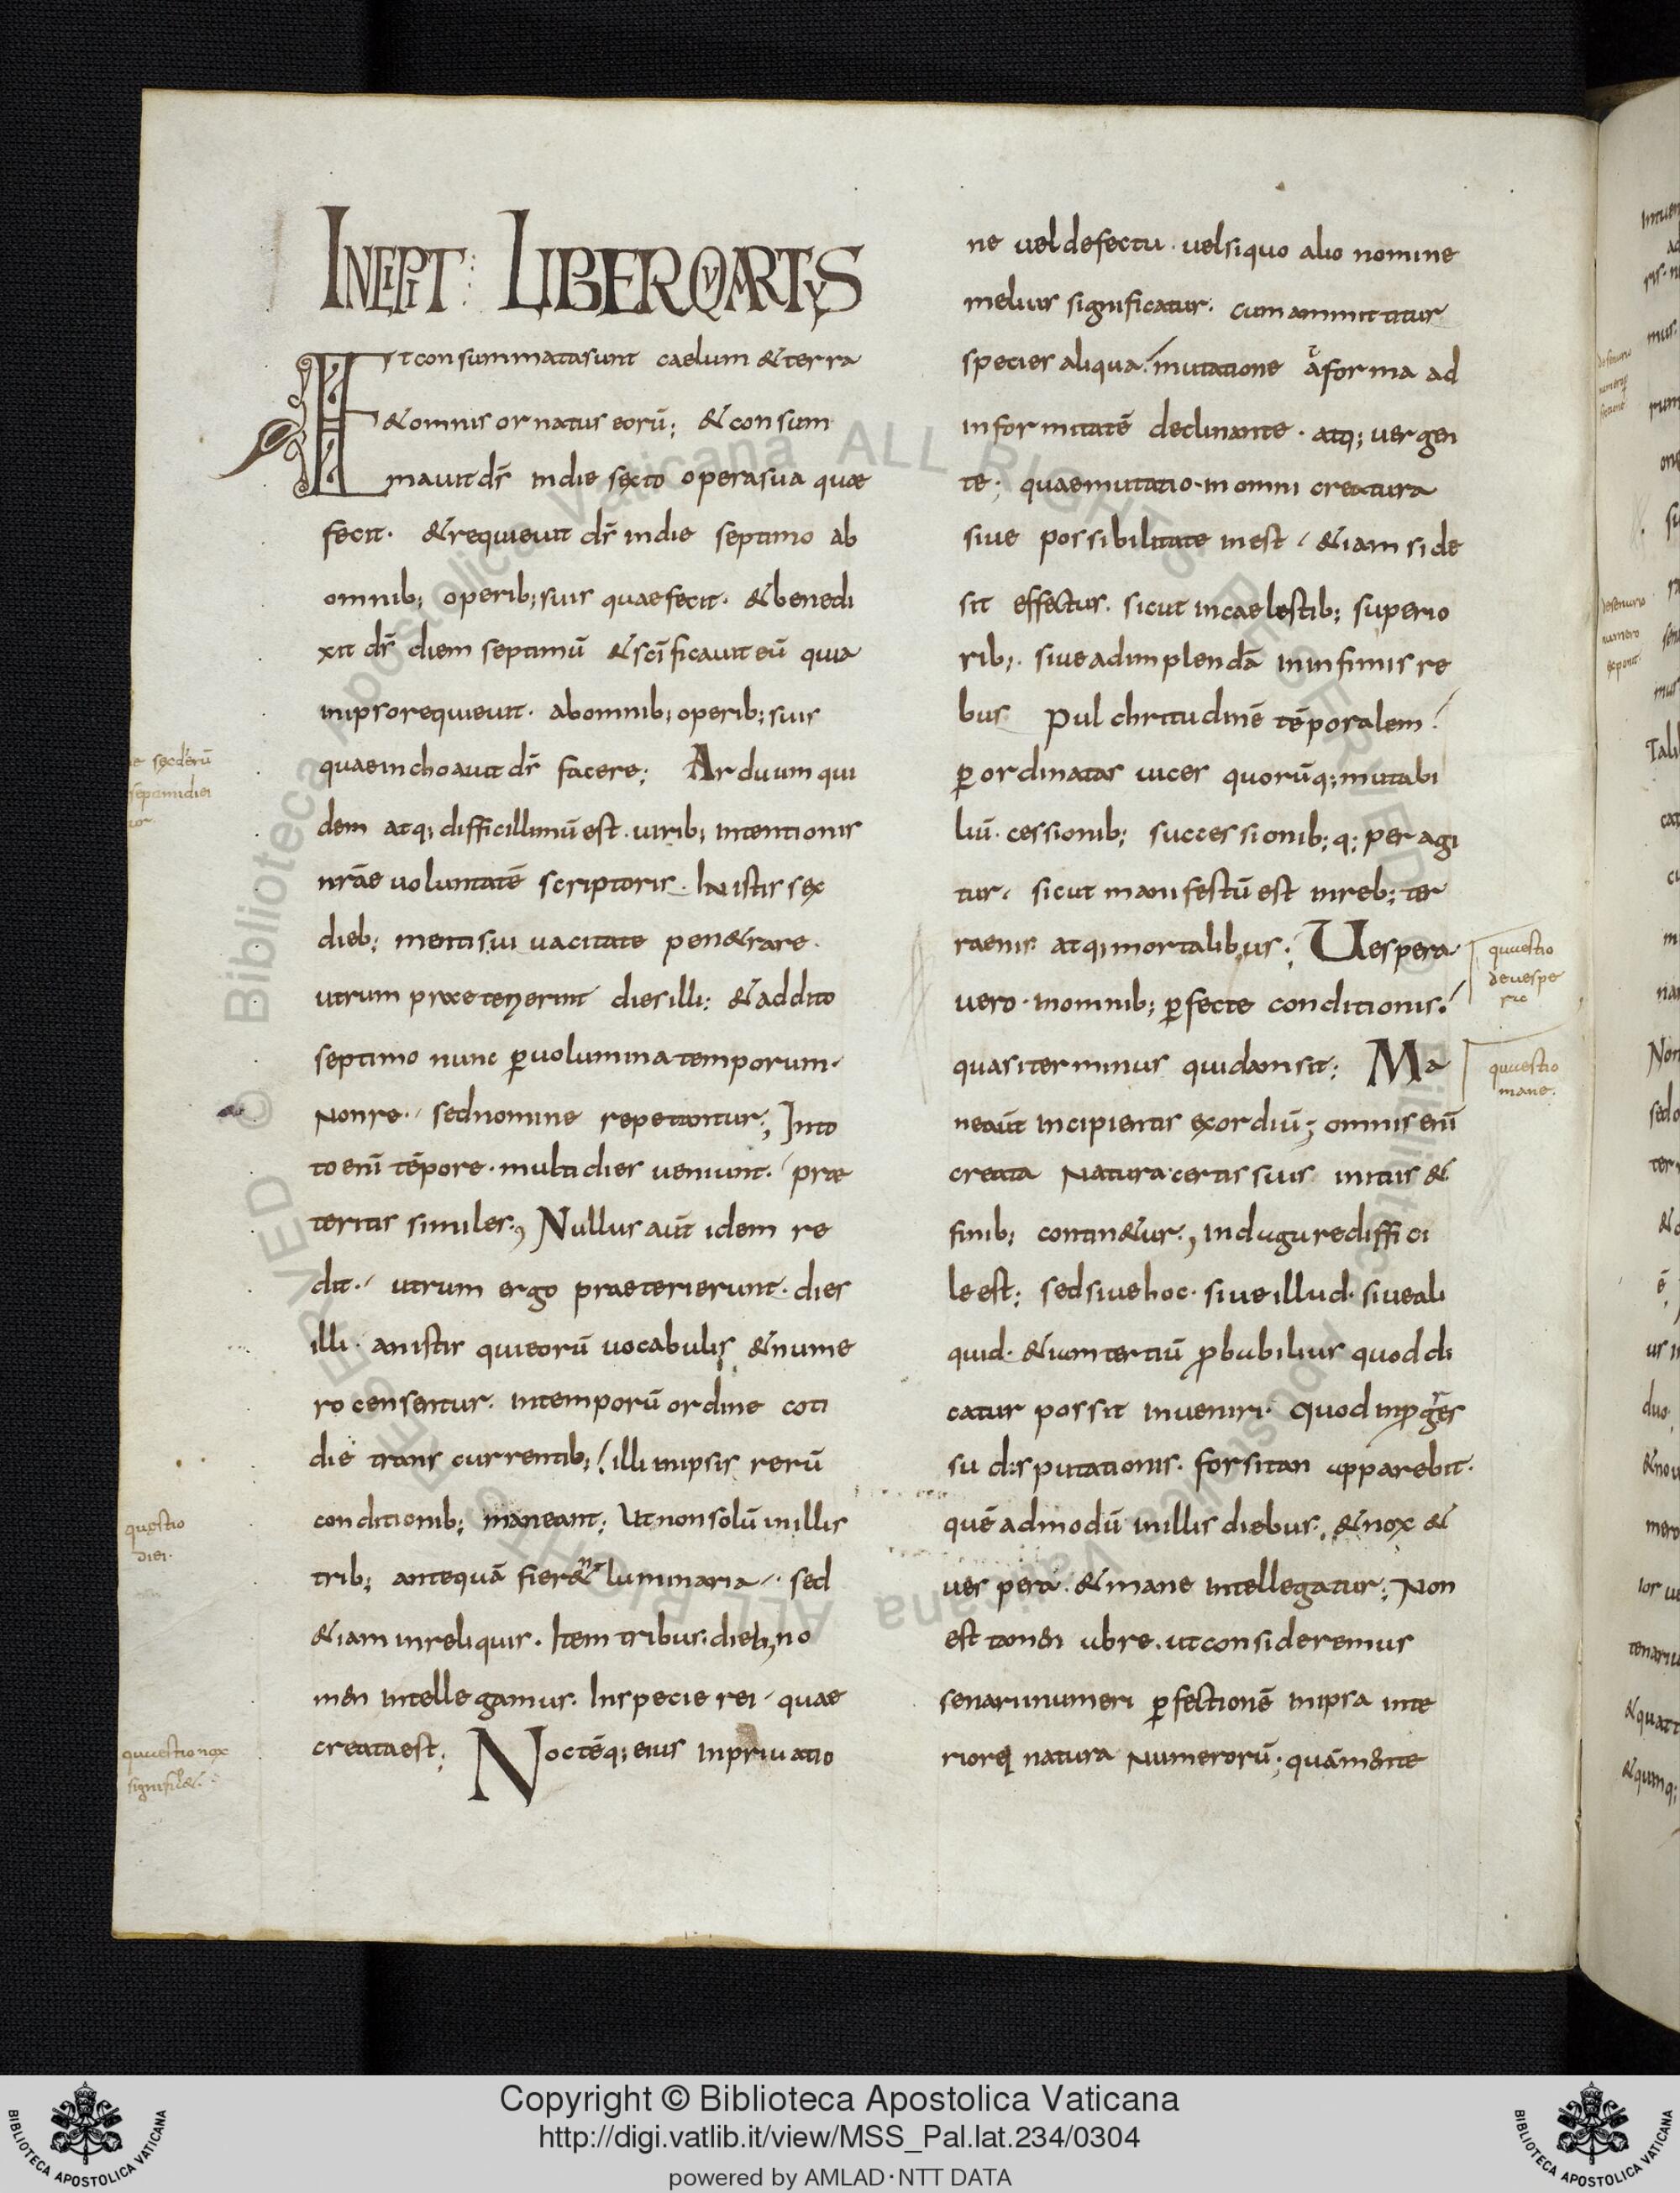 INCIPIT: LIBER QVARTVS
Et consummata sunt caelum & terra
& omnis ornatus eorū; & consum
mavit ds̄ in die sexto opera sua quae
fecit. & requieuit ds̄ in die septimo ab
omnib; operib; suis quae fecit. & benedi
xit ds̄ diem septimū & sc̄ificauit eū quia
in ipso requieuit. ab omnib; operib; suis
quae inchoauit ds̄ facere; Arduum qui
dem atq; difficillimū est. uirib; intentionis
nr̄ae uoluntatē scriptoris. In istis sex
dieb; mentis ui uacitate pen&rare.
utrum praeterierint dies illi: & addito
septimo nunc ꝑ uolumina temporum.
Non re. sed nomine repetantur; In to
to enī tēpore. multi dies ueniunt. prae
teritis similes., Nullus aūt idem re
dit. utrum ergo praeterierunt. dies
illi. an istis qui eorū uocabulis & nume
ro censentur. in temporū ordine coti
die transcurrentib; illi in ipsis rerū
conditionib; maneant; Ut non solū in illis
trib; antequā fier&nt luminaria. sed
& iam in reliquis. Item tribus. dieb; no
men intellegamus. In specie rei. quae
creata est; Noctēq; eius in priuatio
ne uel defectu. uel si quo alio nomine
melius significatur. cum ammittitur
species aliqua. mutatione a forma ad
informitatē declinante. atq; uergen
te; quae mutatio. in omni creatura
siue possibilitate inest. & iam si de
sit effectus. sicut in caelestib; superio
rib;. siue ad implendā in infimis re
bus pulchritudinē tēporalem.
ꝑ ordinatas uices quorūq; mutabi
liū. cessionib; successionib; q; peragi
tur. sicut manifestū est in reb; ter
raenis atq; mortalibus; Uespera
uero. in omnib; ꝑfecte conditionis.
quasi terminus quidam sit; Ma
ne aūt incipientis exordiū; omnis enī
creata natura certis suis initiis &
finib; contin&ur., Indagare diffici
le est; sed siue hoc. siue illud. siue ali
quid. & iam tertiū ꝓbabilius quod di
catur possit inueniri. quod in ꝓgres
su disputationis. forsitan apparebit.
quē admodū in illis diebus. & nox &
uespera. & mane intellegatur; Non
est tamen ab re. ut consideremus
senarii numeri ꝑfectionē in ipsa inte
riore natura numerorū; quā mente
septimi diei
questio
diei.
questio nox
signific&.
questio
de uespe
ra
questio
mane.
de senario
numero
exponit
BIBLIOTECA APOSTOLICA VATICANA
Copyright © Biblioteca Apostolica Vaticana
http://digi.vatlib.it/view/MSS_Pal.lat.234/0304
powered by AMLAD·NTT DATA
BIBLIOTECA APOSTOLICA VATICANA